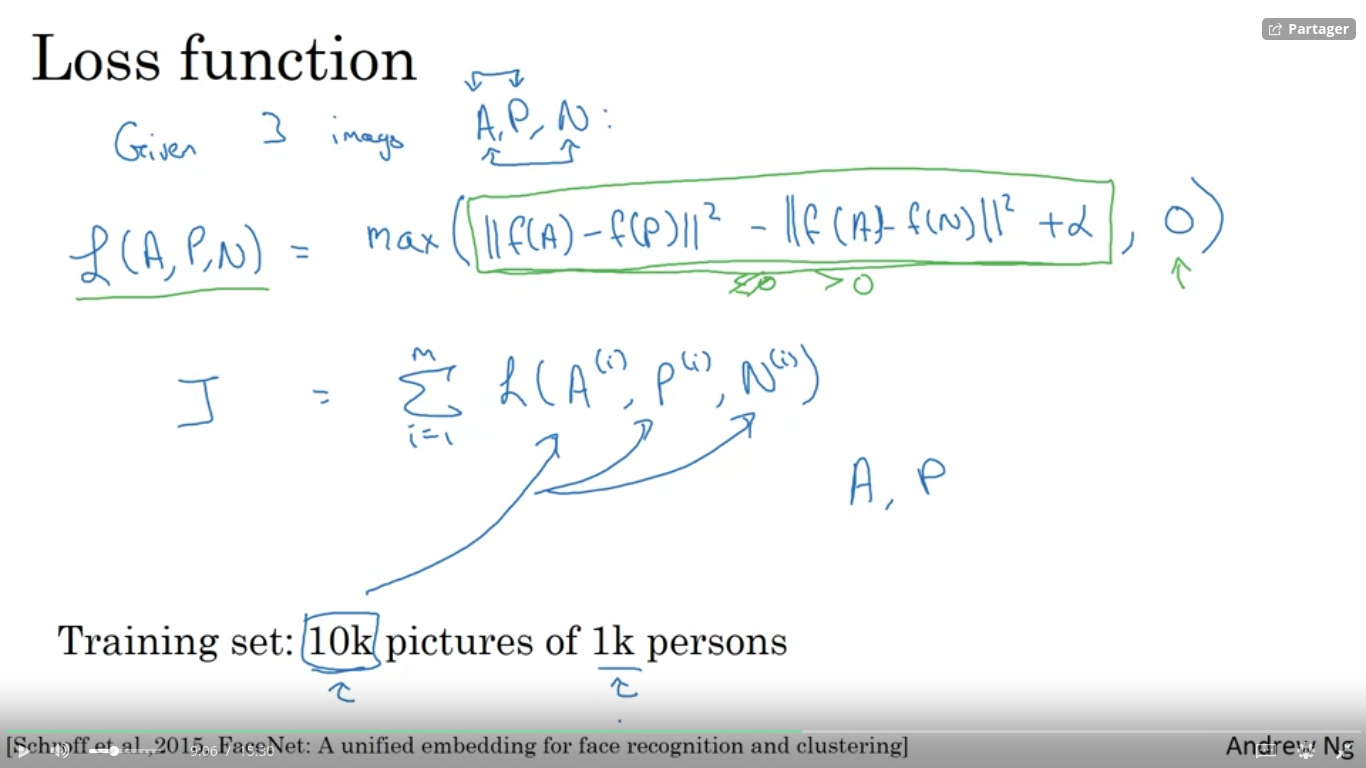 Partager
Loss function
Given 3 images A, P, N:
L(A, P, N) = max(||f(A) - f(P)||² - ||f(A) - f(N)||² + α, 0)
> 0
J = Σ L(A⁽ⁱ⁾, P⁽ⁱ⁾, N⁽ⁱ⁾)
M
i=1
A, P
Training set: 10k pictures of 1k persons
[Schroff et al.,2015, FaceNet: A unified embedding for face recognition and clustering]
Andrew Ng
9:06 / 15:30